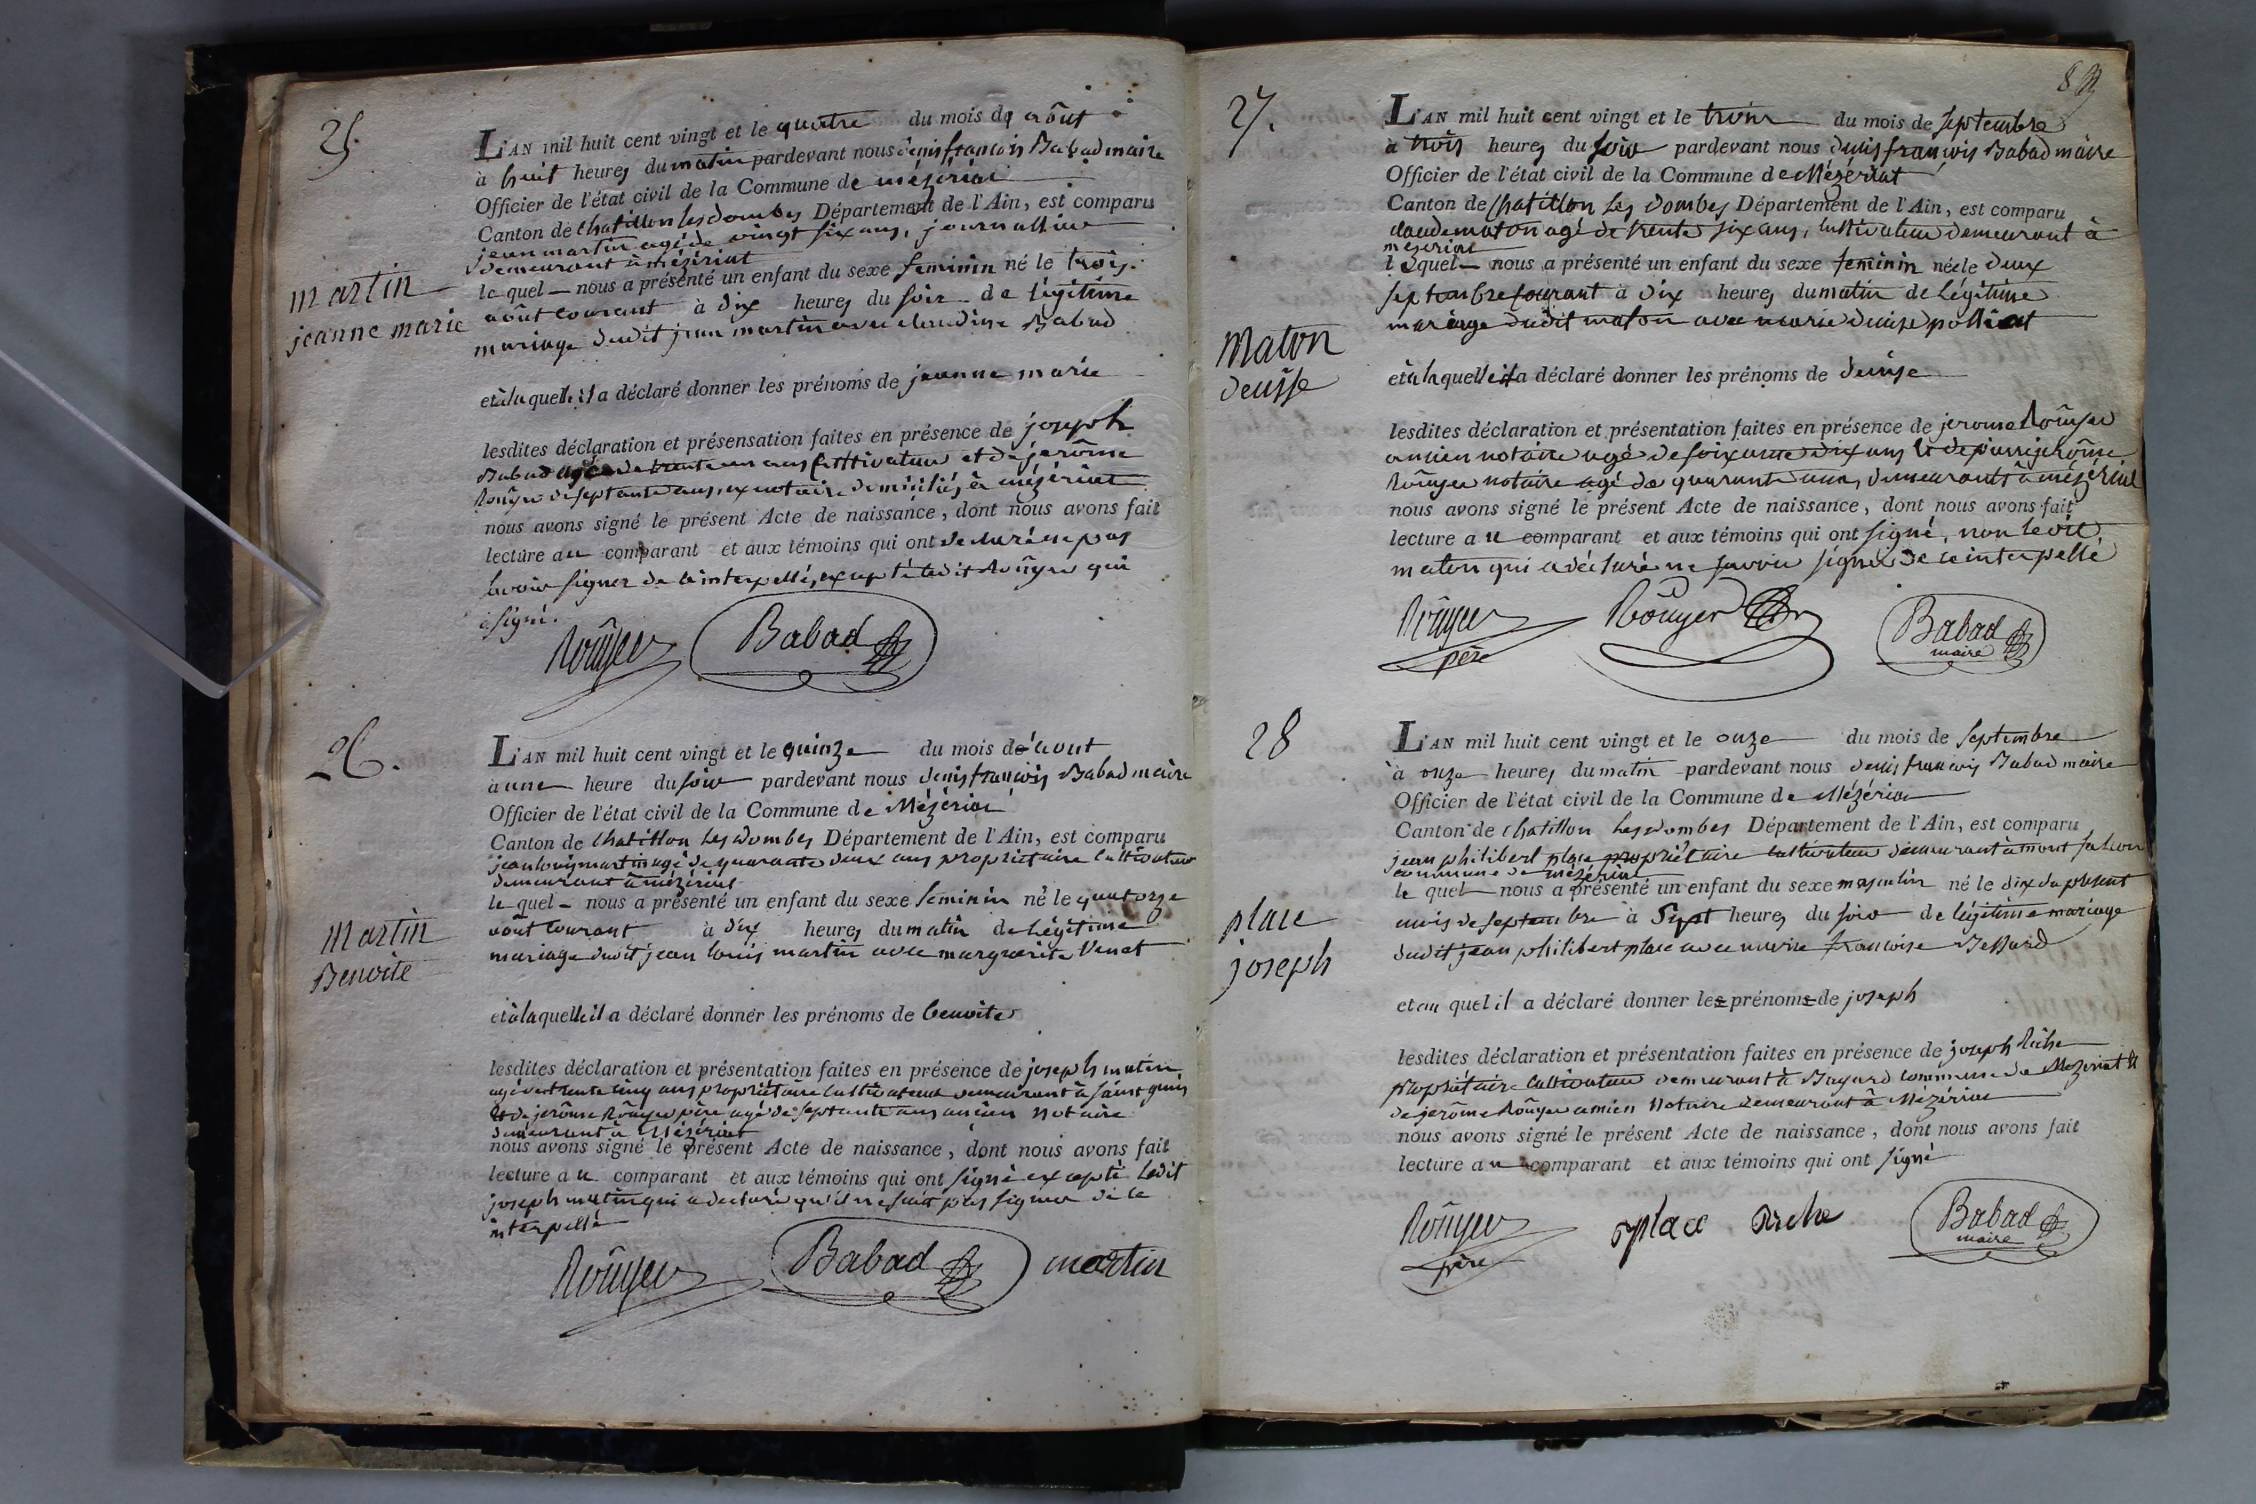 25.
L'AN mil huit cent vingt et le quatre du mois de août
à huit heures du matin pardevant nous denis françois Babad maire
Officier de l'état civil de la Commune de mézériat
Canton de Chatillon les dombes Département de l'Ain, est comparu
jean martin agé de vingt six ans, journallier
demeurant à mézériat
le quel nous a présenté un enfant du sexe feminin né le trois
août courant à dix heures du soir de légitime
mariage dudit jean martin avec claudine Babad
martin
jeanne marie
et à la quelle il a déclaré donner les prénoms de jeanne marie
lesdites déclaration et présensation faites en présence de joseph
Babad agé de trente un ans cultivateur et de jerôme
Roûyer de septante ans, ex notaire domiciliés à mézériat
nous avons signé le présent Acte de naissance, dont nous avons fait
lecture au comparant et aux témoins qui ont declaré ne pas
savoir signer de ce interpellés, excepté ledit Roûyer qui
a signé.
Roûyer Babad
26.
L'AN mil huit cent vingt et le quinze du mois d'aout
à une heure du soir pardevant nous denis françois Babad maire
Officier de l'état civil de la Commune de Mézériat
Canton de Chatillon les dombes Département de l'Ain, est comparu
jean louis martin agé de quarante deux ans propriétaire cultivateur
demeurant à mézériat
le quel nous a présenté un enfant du sexe feminin né le quatorze
août courant à dix heures du matin de légitime
mariage dudit jean louis martin avec marguerite Venet
Martin
Benoite
et à la quelle il a déclaré donner les prénoms de benoite
lesdites déclaration et présentation faites en présence de joseph matin
agé de trente cinq ans propriétaire cultivateur demeurant à saint genis
et de jerôme Roûyer père agé de septante ans ancien notaire
demeurant à Mézériat
nous avons signé le présent Acte de naissance, dont nous avons fait
lecture au comparant et aux témoins qui ont signé excepté ledit
joseph matin qui a declaré qu'il ne sait pas signer de ce
interpellé
Roûyer Babad martin
27.
L'AN mil huit cent vingt et le trois du mois de septembre
à trois heures du soir pardevant nous denis françois Babad maire
Officier de l'état civil de la Commune de Mézériat
Canton de Chatillon les dombes Département de l'Ain, est comparu
claude maton agé de trente six ans, cultivateur demeurant à
mézériat
lequel nous a présenté un enfant du sexe feminin née le deux
septembre courant à dix heures du matin de légitime
mariage dudit maton avec marie denise polliat
Maton
denisse
et à la quelle il a déclaré donner les prénoms de denise
lesdites déclaration et présentation faites en présence de jerome Roûyer
ancien notaire agé de soixante dix ans et de pierre jerôme
Roûyer notaire agé de quarante ans, demeurants à mézériat
nous avons signé le présent Acte de naissance, dont nous avons fait
lecture au comparant et aux témoins qui ont signé, non ledit
maton qui a déclaré ne savoir signer de ce interpellé
Roûyer père Roûyer Babad maire
28
L'AN mil huit cent vingt et le onze du mois de septembre
à onze heures du matin pardevant nous denis françois Babad maire
Officier de l'état civil de la Commune de Mézériat
Canton de Chatillon les dombes Département de l'Ain, est comparu
jean philibert place propriétaire cultivateur demeurant à mont
commune de mézériat
le quel nous a présenté un enfant du sexe masculin né le dix du présent
mois de septembre à Sept heures du soir de légitime mariage
dudit jean philibert place avec marie françoise Bessard
place
joseph
et au quel il a déclaré donner les prénoms de joseph
lesdites déclaration et présentation faites en présence de joseph Riche
propriétaire cultivateur demeurant à Bayard commune de Mézériat et
de jerôme Roûyer ancien Notaire demeurant à Mézériat
nous avons signé le présent Acte de naissance, dont nous avons fait
lecture au comparant et aux témoins qui ont signé
Roûyer père place Riche Babad maire